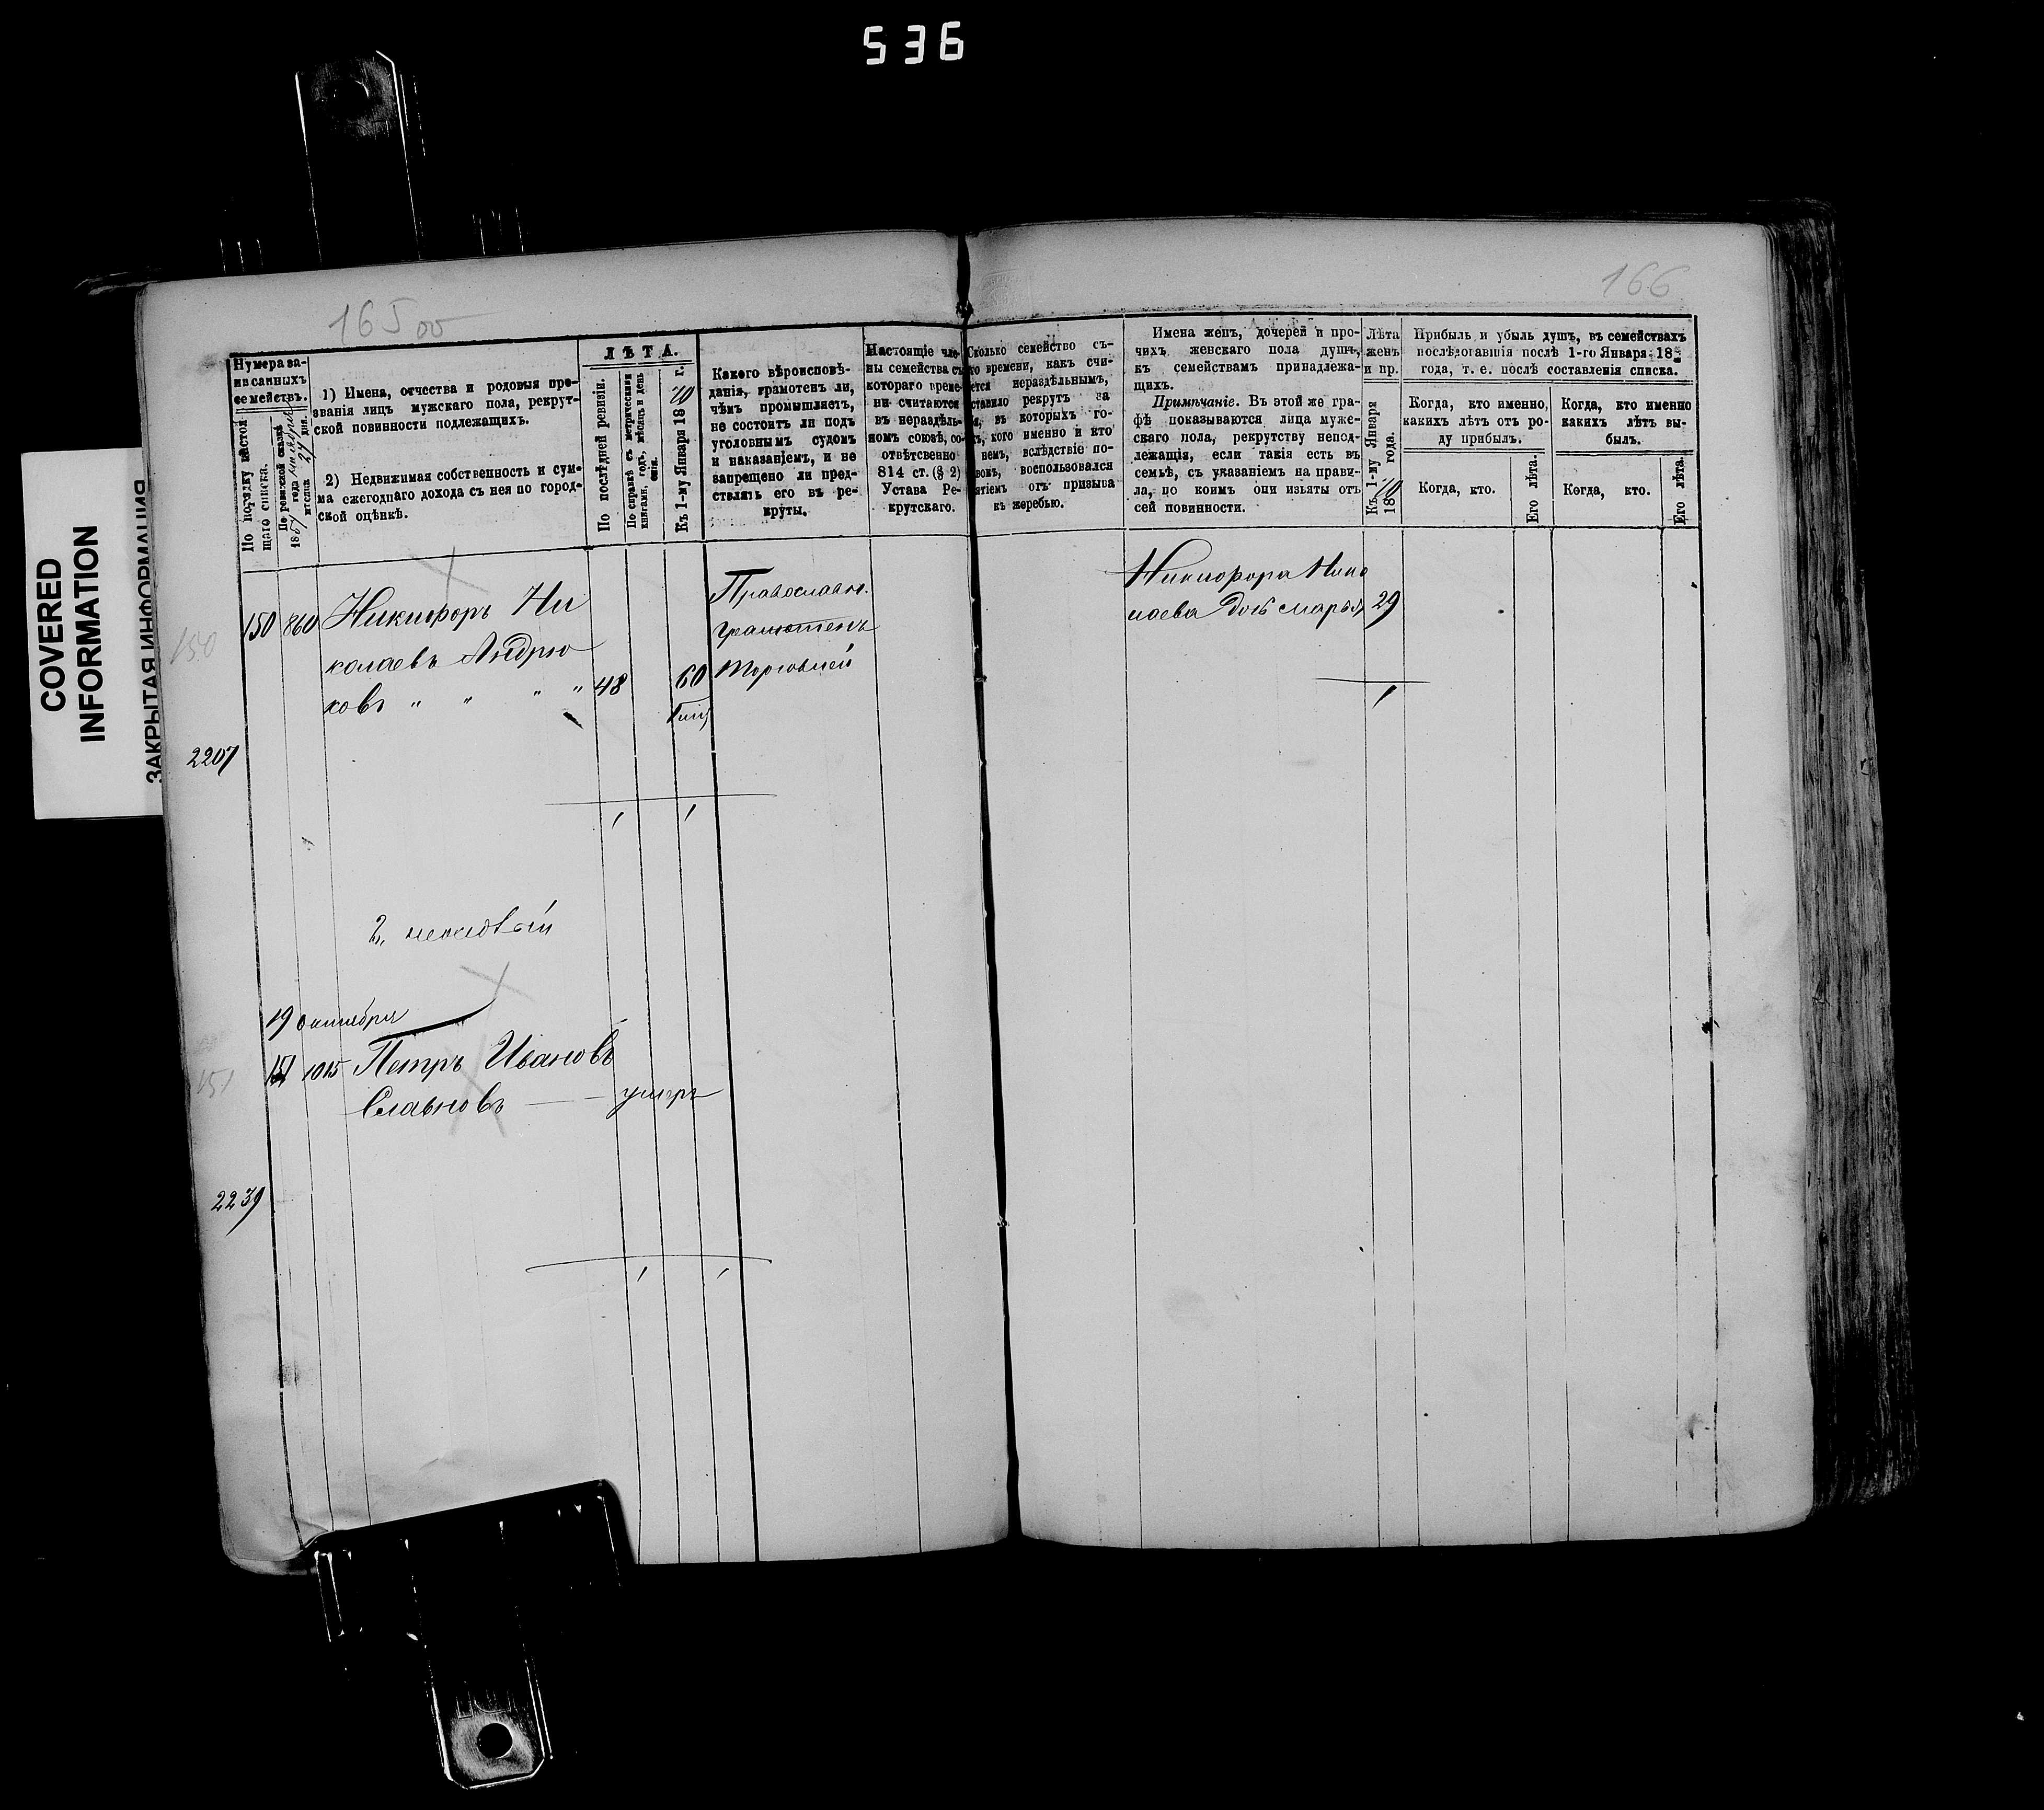 536
COVERED
INFORMATION
ЗАКРЫТАЯ ИНФОРМАЦИЯ
165 об
166
Нумера за-
писанныхъ
семействъ.
По порядку настоя-
щаго списка.
По ревизской сказкѣ
18 года
мѣсяца 24 дня.
1) Имена, отчества и родовыя про-
званія лицъ мужскаго пола, рекрут-
ской повинности подлежащихъ.
2) Недвижимая собственность и сум-
ма ежегоднаго дохода съ нея по город-
ской оцѣнкѣ.
ЛѢТА.
По послѣдней ревизіи.
По справкѣ съ метрическими
книгами, годъ, мѣсяцъ и день
Къ 1-му Января 1870 г.
Какого вѣроисповѣ-
данія, грамотенъ ли,
чѣмъ промышляетъ,
не состоитъ ли подъ
уголовнымъ судомъ
и наказаніемъ, и не
запрещено ли пред-
ставлять его въ ре-
круты.
Настоящіе чле-
ны семейства съ
котораго време-
ни считаются
въ нераздѣль-
номъ союзѣ, со-
отвѣтсвенно
814 ст. (§ 2)
Устава Ре-
крутскаго.
Сколько семейство съ-
го времени, какъ счи-
ется нераздѣльнымъ,
ставило рекрутъ за
я, въ которыхъ го-
хъ, кого именно и кто
немъ, вслѣдствіе по-
вомъ, воспользовался
ятіемъ отъ призыва
къ жеребью.
Имена женъ, дочерей и про-
чихъ женскаго пола душъ,
къ семействамъ принадлежа-
щихъ.
Примѣчаніе. Въ этой же гра-
фѣ показываются лица муже-
скаго пола, рекрутству непод-
лежащія, если такія есть въ
семьѣ, съ указаніемъ на прави-
ла, по коимъ они изъяты отъ
сей повинности.
Лѣта
женъ
и пр.
Къ 1-му Января
1870 года.
Прибыль и убыль душъ, въ семействахъ
послѣдовавшія послѣ 1-го Января 18
года, т. е. послѣ составленія списка.
Когда, кто именно,
какихъ лѣтъ отъ ро-
ду прибылъ.
Когда, кто именно
какихъ лѣтъ вы-
былъ.
Когда, кто.
Его лѣта.
Когда, кто.
Его лѣта.
150
150 860 Никифоръ Ни
колаевъ Андрю
ковъ " " " " 48 60
Православн.
грамотенъ
торговлей
Никифора Нико
лаева дочь Марья 29
1
2207
1 1
19 октября
151
151 1015 Петръ Ивановъ
Славновъ — — умеръ
2239
1 1